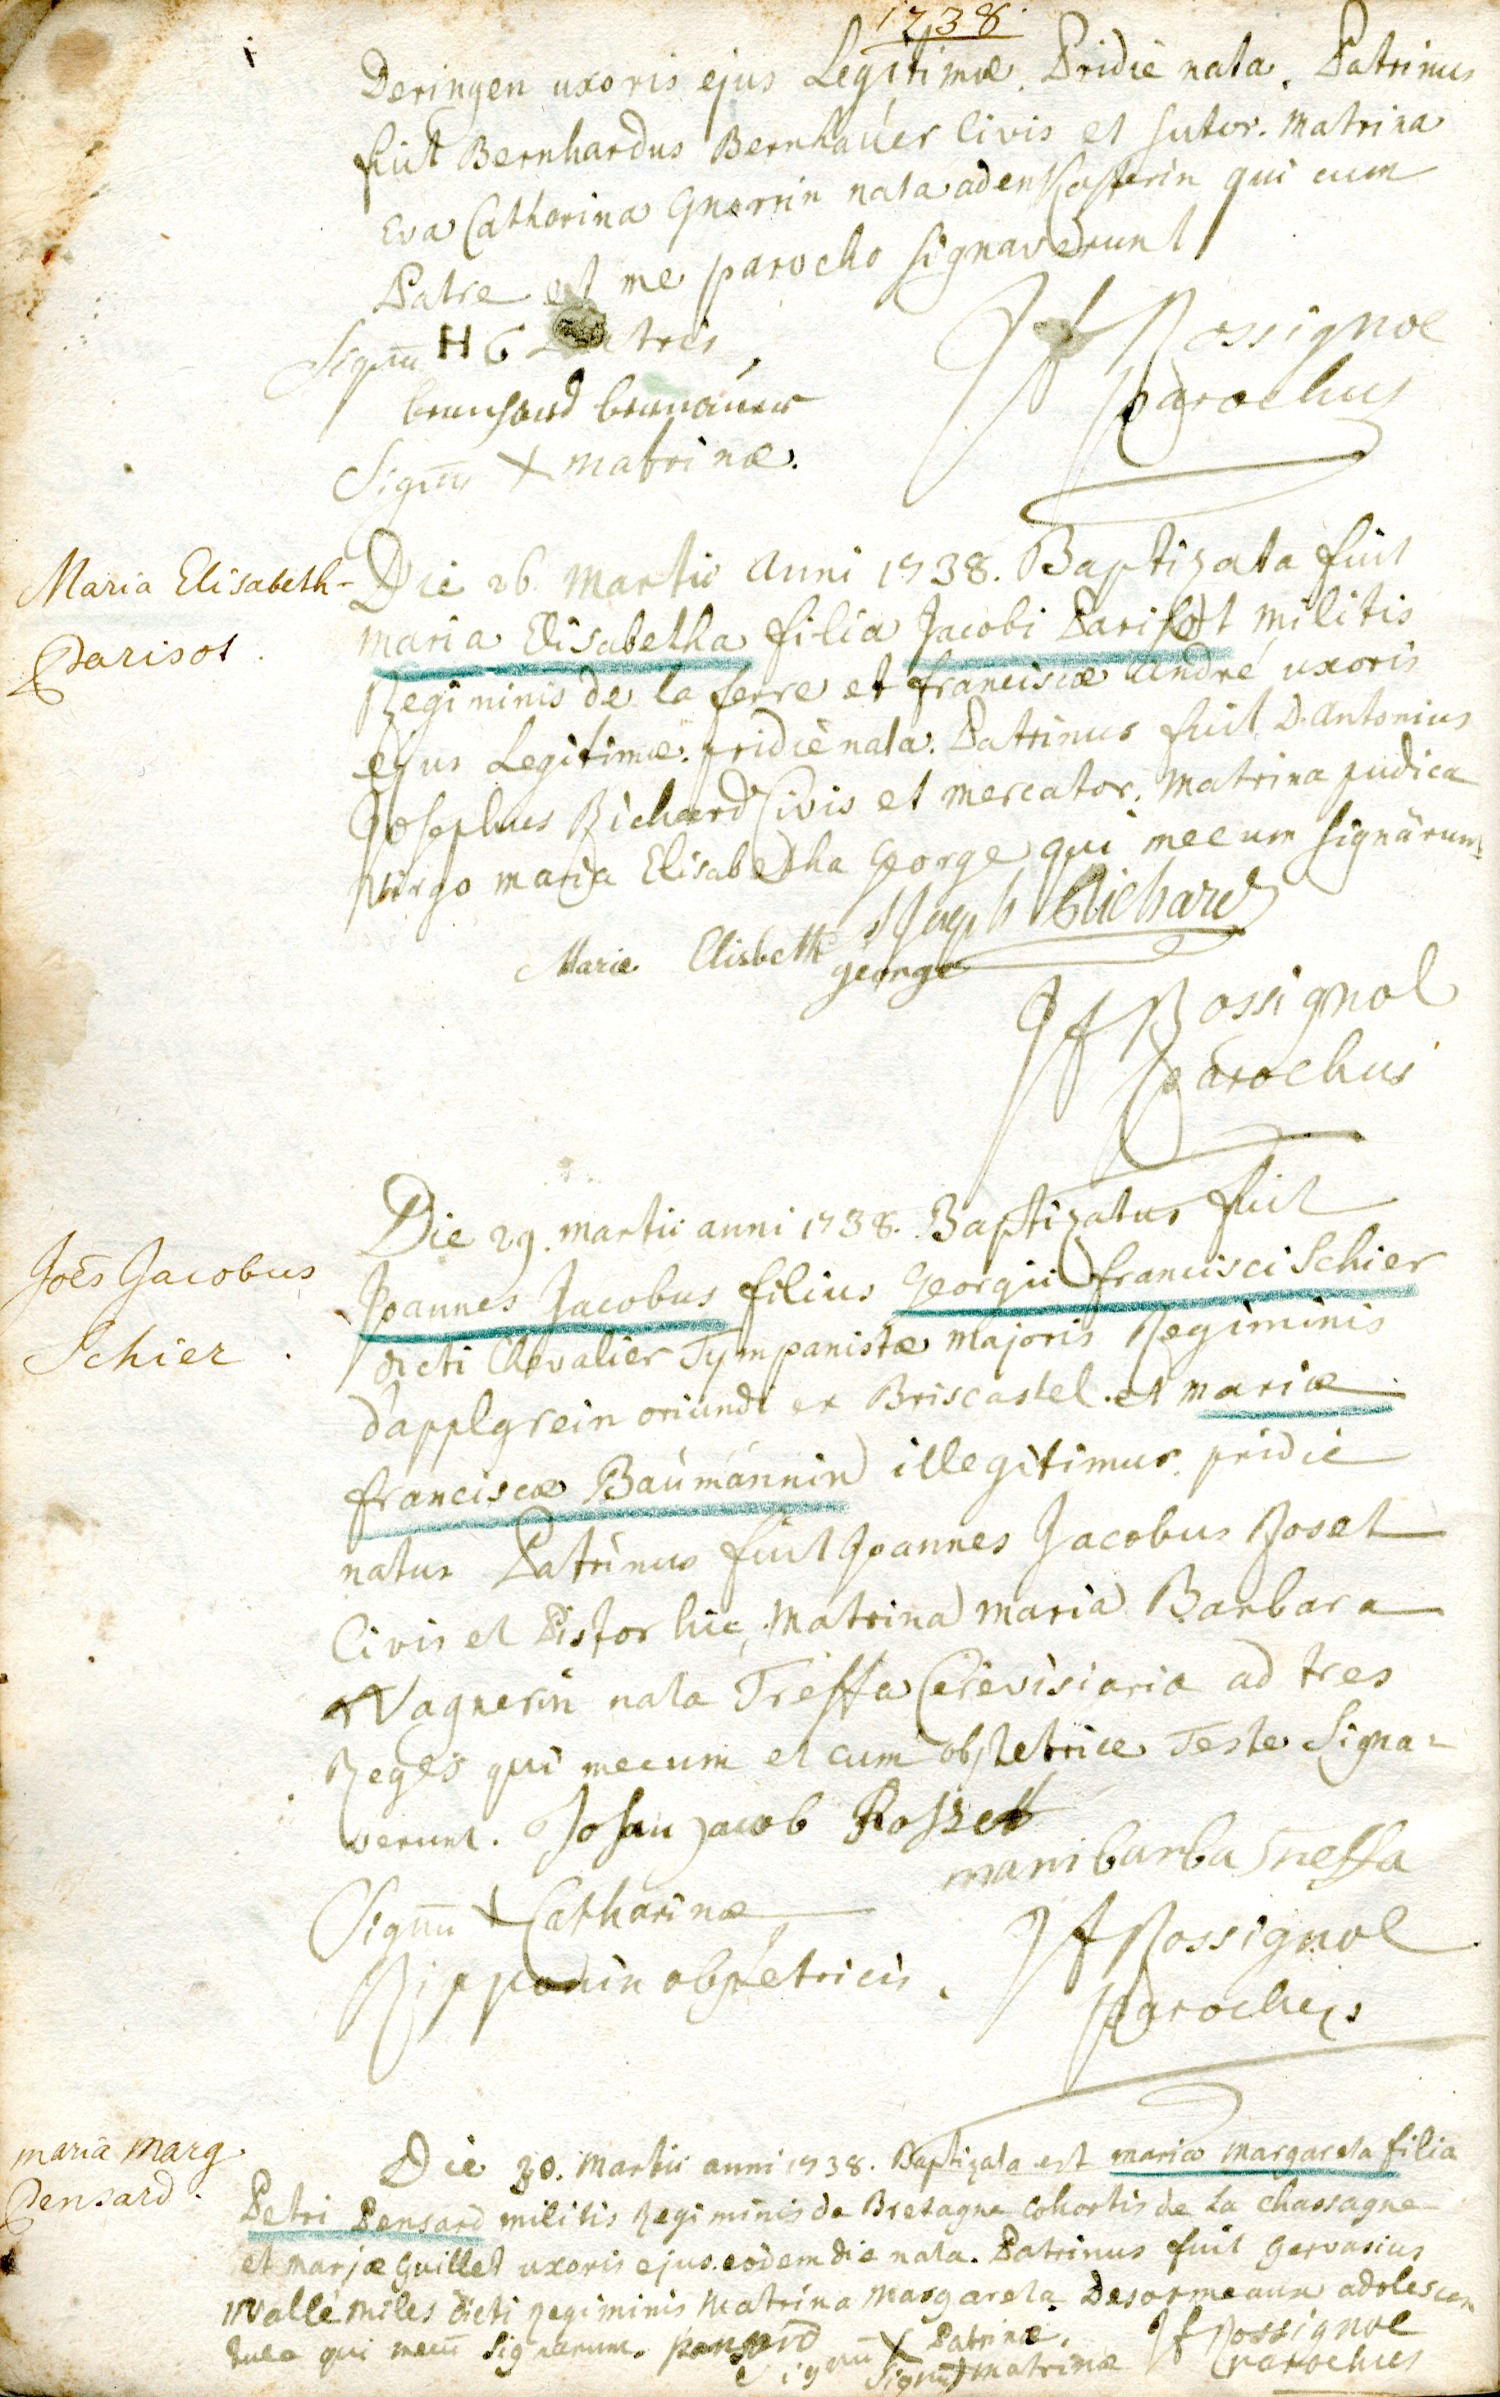 1738.
Deringen uxoris ejus Legitimæ. Pridie nata. Patrinus
fuit Bernhardus Bernhauer Civis et sutor. Matrina
Eva Catharina nata qui cum
Patre et me parocho signaverunt
Signū H G Patris
JF Rossignol
Parochus
Signū X matrinæ.
Maria Elisabeth
Parisot.
Die 26. Martii Anni 1738. Baptizata fuit
Maria Elisabetha filia Jacobi Parisot militis
Regiminis de la ferre et franciscæ André uxoris
ejus Legitimæ. pridie nata. Patrinus fuit D. Antonius
Josephus Richard Civis et mercator. Matrina pudica
virgo maria Elisabetha George qui mecum signârunt
Joseph Richard
Marie Elisbeth george
JF Rossignol
Parochus
Joēs Jacobus
Schier.
Die 29. martii anni 1738. Baptizatus fuit
Joannes Jacobus filius Georgii francisci Schier
dicti Chevalier Tympanistæ majoris Regiminis
d'applgrein oriundi ex Briscastel. et mariæ
franciscæ Baumännin illegitimus. pridie
natus Patrinus fuit Joannes Jacobus Roset
Civis et Pistor hic, Matrina maria Barbara
Wagnerin nata Treffa Cerevisiaria ad tres
Reges qui mecum et cum obstetrice Teste signa-
verunt. Johan Jacob Roszet
mari barba Treffa
Signū X Catharinæ
obstetricis.
JF Rossignol
Parochus
maria Marg.
Pensard.
Die 30. Martii anni 1738. Baptizata est maria Margareta filia
Petri Pensard militis Regiminis de Bretagne Cohortis de La Chassagne
et Mariæ Guillet uxoris ejus. eodem die nata. Patrinus fuit Gervasius
Vallé miles dicti regiminis Matrina Margareta Desormeaux adolescen
tula qui mecū signarunt. Pensard
Signū X Patrini.
Signū X matrinæ
JF Rossignol
parochus